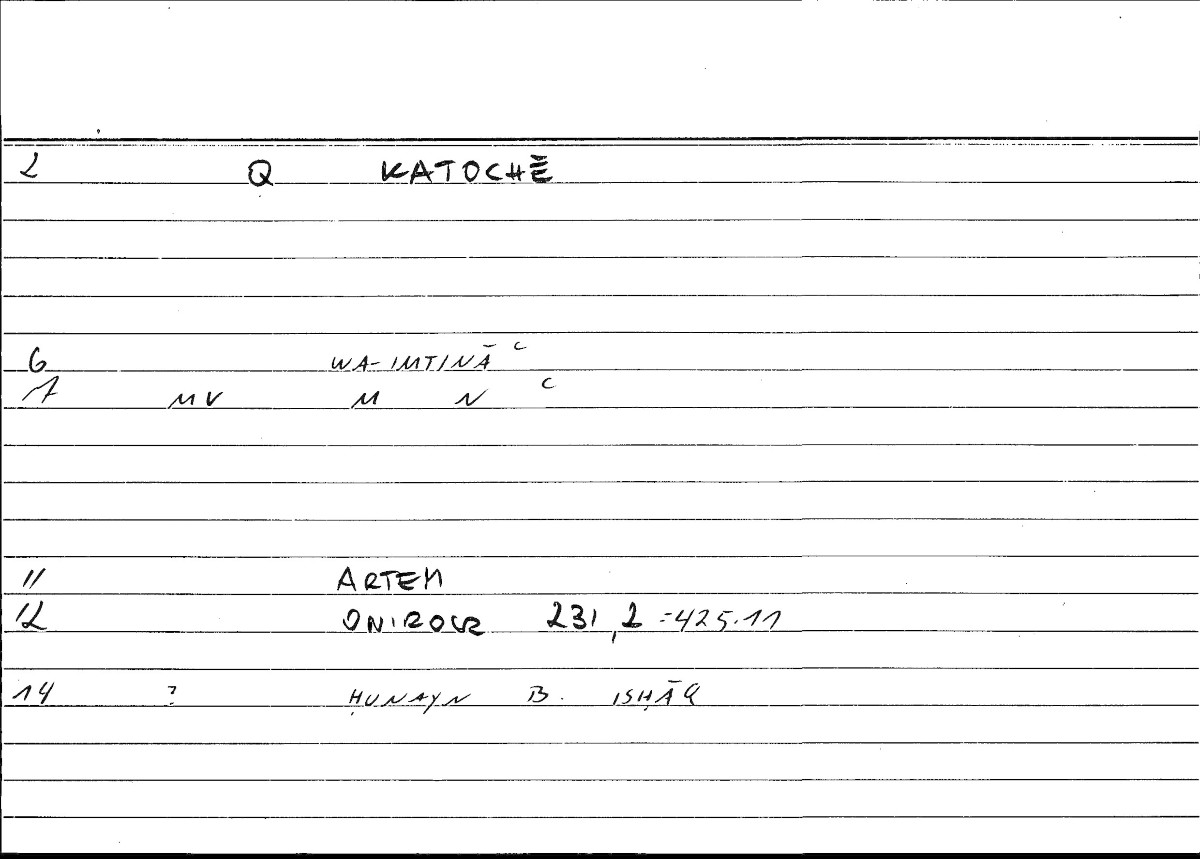 2 Q KATOCHĒ
6 WA-IMTINĀ ͨ
7 MV M N ͨ
11 ARTEM
12 ONIROCR 231,2 =425.11
14 ? ḤUNAYN B. ISḤĀQ